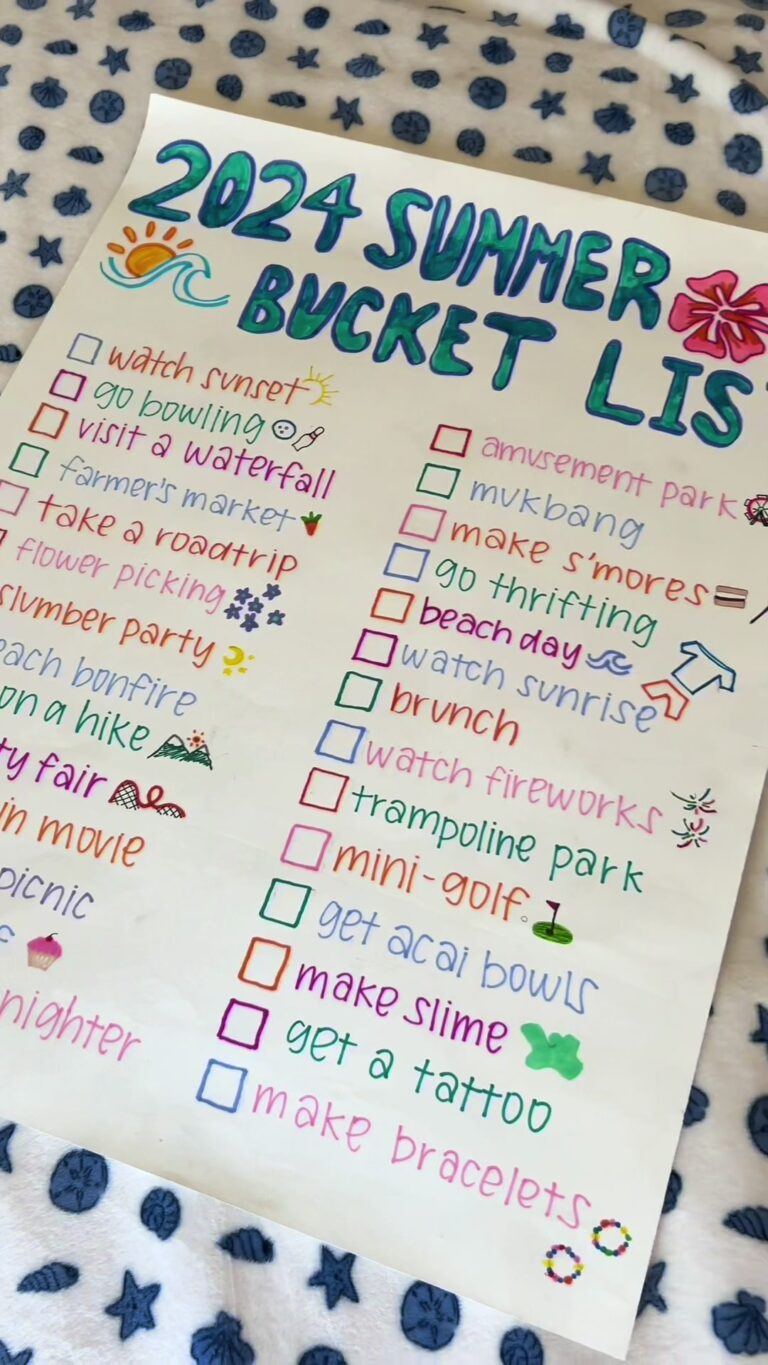 2024 SUMMER
BUCKET LIS
watch sunset
go bowling
visit a waterfall
farmer's market
take a roadtrip
flower picking
slumber party
each bonfire
on a hike
ty fair
in movie
picnic
f
nighter
amusement park
mukbang
make s'mores
go thrifting
beach day
watch sunrise
brunch
watch fireworks
trampoline park
mini-golf
get acai bowls
make slime
get a tattoo
make bracelets